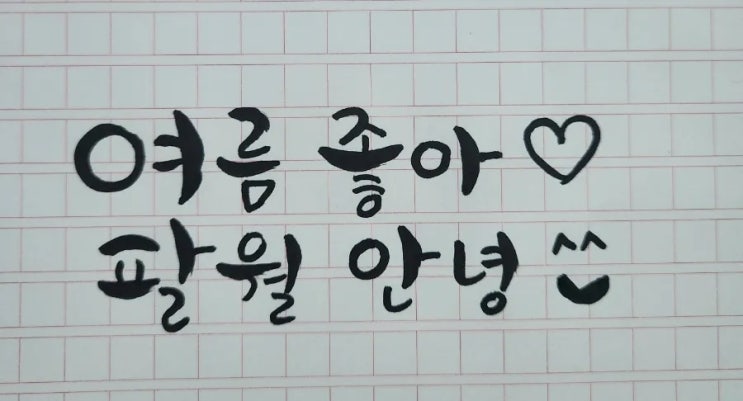 여름 좋아♡
팔월 안녕^^